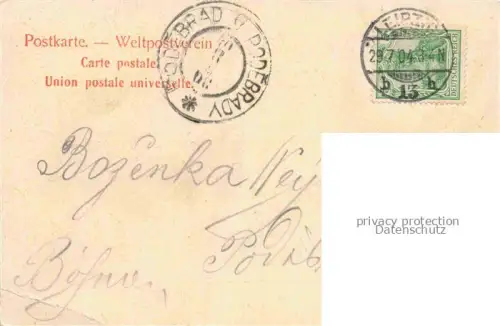 Postkarte. — Weltpostverein
Carte postale.
Union postale universelle.
PODĚBRAD PODĚBRADY
LEIPZIG
29.7.04.
b 13 b
DEUTSCHES REICH
Boženka
Böhmen
privacy protection
Datenschutz